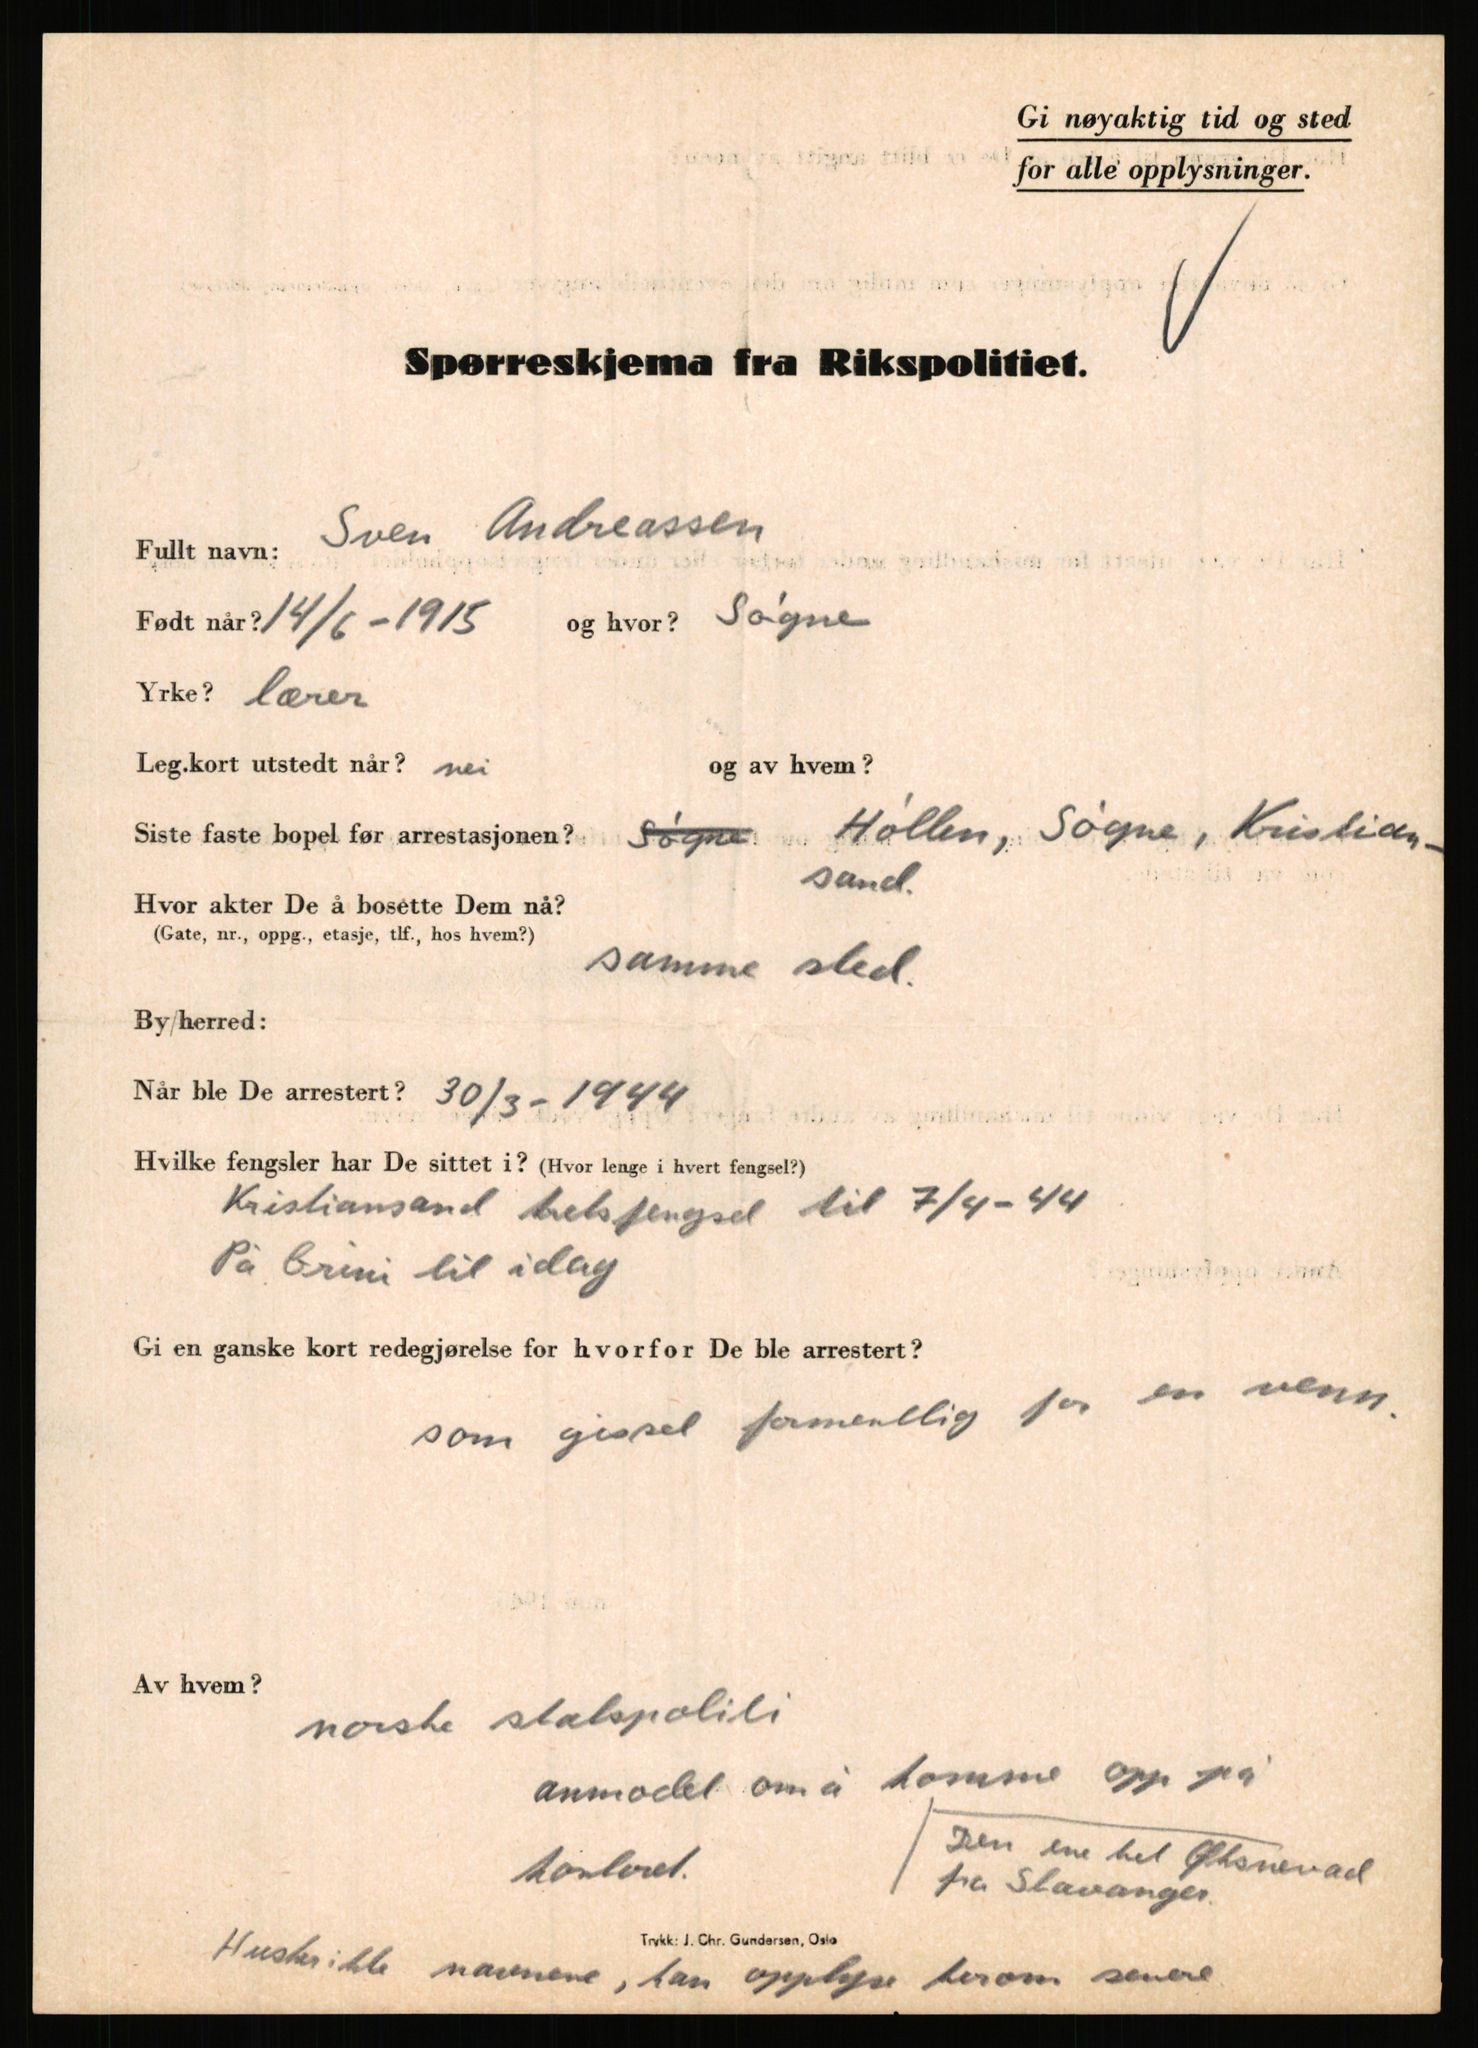 Gi nøyaktig tid og sted
for alle opplysninger.
Spørreskjema fra Rikspolitiet.
Fullt navn: Sven Andreassen
Født når? 14/6-1915 og hvor? Søgne
Yrke? lærer
Leg.kort utstedt når? nei og av hvem?
Siste faste bopel før arrestasjonen? Søgne Høllen, Søgne, Kristian-
sand.
Hvor akter De å bosette Dem nå?
(Gate, nr., oppg., etasje, tlf., hos hvem?)
samme sted.
By/herred:
Når ble De arrestert? 30/3-1944
Hvilke fengsler har De sittet i? (Hvor lenge i hvert fengsel?)
Kristiansand kretsfengsel til 7/4-44
På Grini til idag
Gi en ganske kort redegjørelse for hvorfor De ble arrestert?
som gissel formentlig for en venn.
Av hvem?
norske statspoliti
anmodet om å komme opp på
kontoret.
Den ene het Øksnevad
fra Stavanger.
Trykk: J. Chr. Gundersen, Oslo
Husker ikke navnene, kan opplyse herom senere